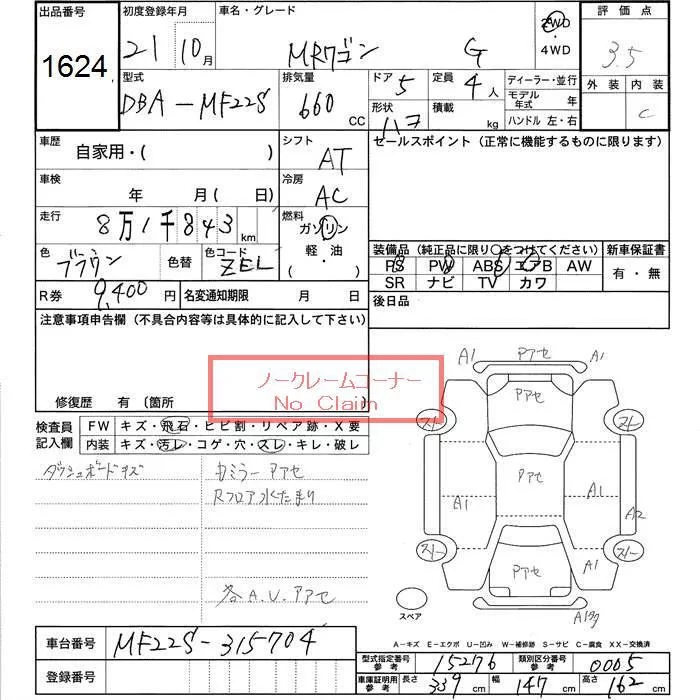 出品番号 初度登録年月 車名・グレード 評価点
1624 21 10月 MRワゴン G 2WD ・ 4WD 3.5
型式 排気量 ドア 5 定員 4人 ディーラー・並行 外装 内装
DBA-MF22S 660 CC 形状 ハコ 積載 kg モデル年式 年 C
ハンドル 左・右
車歴 自家用・( ) シフト AT セールスポイント(正常に機能するものに限ります)
車検 年 月( 日) 冷房 AC
走行 8万1千843km 燃料 ガソリン
軽・油
( ・ )
色 ブラウン 色替 色コード ZEL 装備品(純正品に限り○をつけてください) 新車保証書
PS PW ABS エアB AW 有・無
SR ナビ TV カワ
R券 9,400円 名変通知期限 月 日 後日品
注意事項申告欄(不具合内容等は具体的に記入して下さい)
ノークレームコーナー
No Claim
修復歴 有(箇所
検査員記入欄 FW キズ・飛石・ヒビ割・リペア跡・X要
内装 キズ・汚レ・コゲ・穴・スレ・キレ・破レ
ダッシュボードキズ
カミラー アアセ
Rフロア 水たまり
各A.U.アアセ
A1 アアセ A1
アアセ
スト スト
アアセ
A1 A1 A2
スト スト
アアセ A1
スペア
A-キズ E-エクボ U-凹み W-補修跡 S-サビ C-腐食 XX-交換済
車台番号 MF22S-315704
登録番号
型式指定番号 参考 15276 類別区分番号 参考 0005
車庫証明用 参考 長さ 339 cm 幅 147 cm 高さ 162 cm